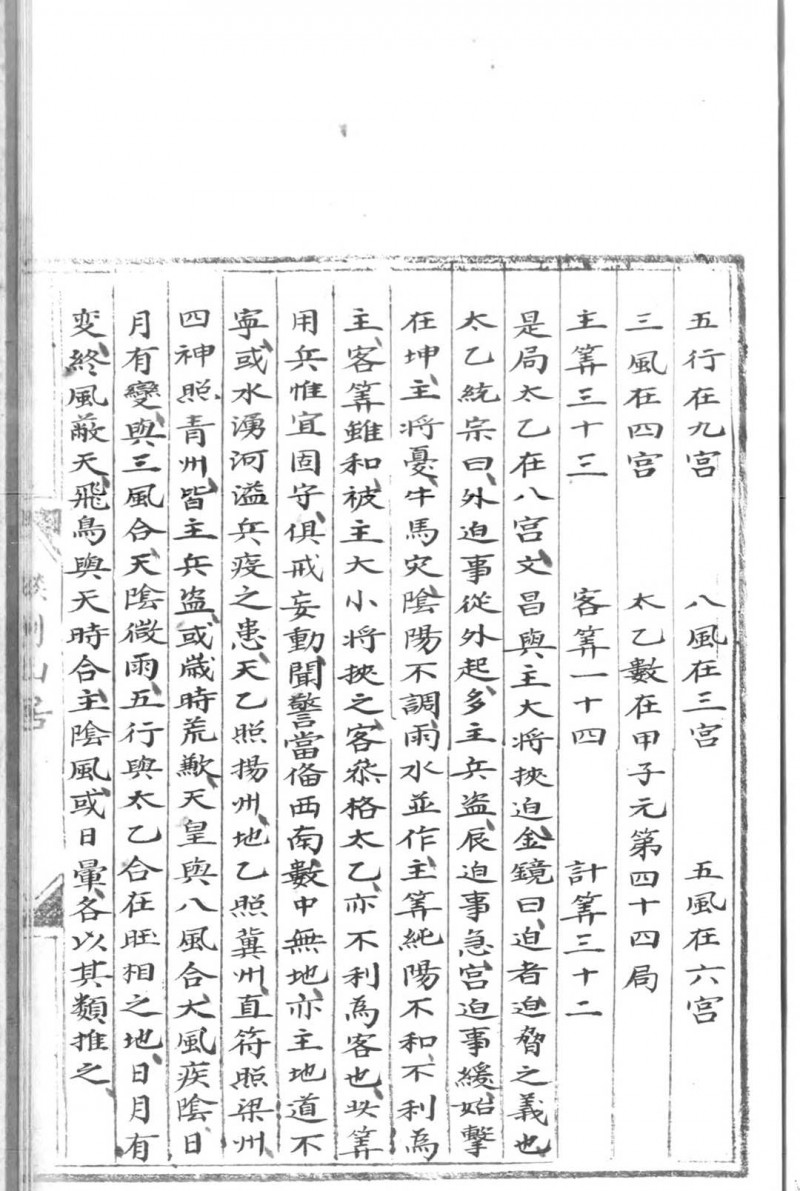 五行在九宫　八風在三宫　五風在六宫
三風在四宫　太乙數在甲子元第四十四局
主筭三十三　客筭一十四　計筭三十二
是局太乙在八宫文昌與主大將挾迫金鏡曰、迫者迫脅之義也
太乙統宗曰、外迫事從外起、多主兵盜、辰迫事急、宫迫事緩、始擊
在坤、主將憂、牛馬灾、陰陽不調、雨水並作、主筭純陽不和、不利為
主、客筭雖和、被主大小將挾之、客叅格太乙、亦不利為客也、此筭
用兵惟宜固守、俱戒妄動、聞警當俻西南、數中無地、亦主地道不
寧、或水湧河溢兵疫之患、天乙照揚州、地乙照冀州、直符照梁州、
四神照青州、皆主兵盜、或歲時荒歉、天皇與八風合大風疾陰日
月有變、與三風合、天陰微雨、五行與太乙合在旺相之地、日月有
变、終風蔽天、飛鳥與天時合、主陰風、或日暈、各以其類推之、
山居